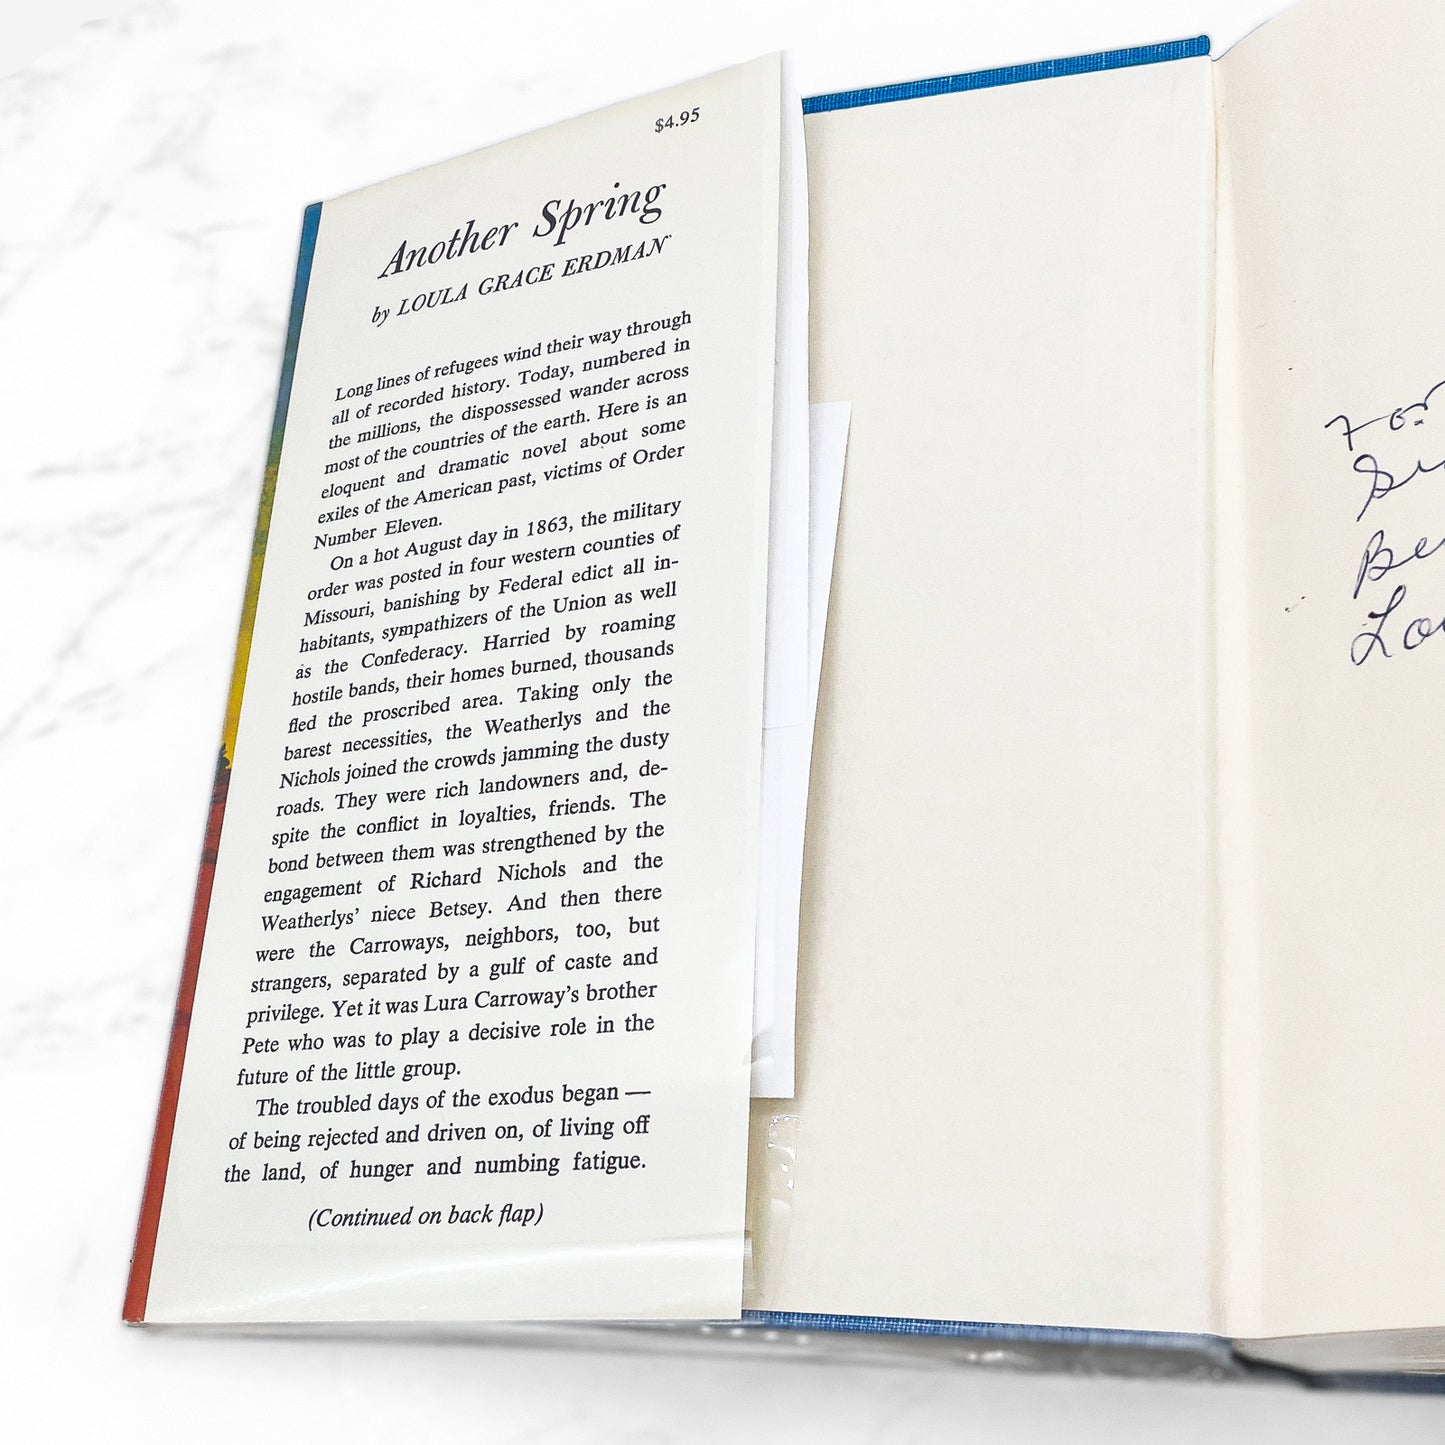 $4.95
Another Spring
by LOULA GRACE ERDMAN
Long lines of refugees wind their way through
all of recorded history. Today, numbered in
the millions, the dispossessed wander across
most of the countries of the earth. Here is an
eloquent and dramatic novel about some
exiles of the American past, victims of Order
Number Eleven.
On a hot August day in 1863, the military
order was posted in four western counties of
Missouri, banishing by Federal edict all in-
habitants, sympathizers of the Union as well
as the Confederacy. Harried by roaming
hostile bands, their homes burned, thousands
fled the proscribed area. Taking only the
barest necessities, the Weatherlys and the
Nichols joined the crowds jamming the dusty
roads. They were rich landowners and, de-
spite the conflict in loyalties, friends. The
bond between them was strengthened by the
engagement of Richard Nichols and the
Weatherlys' niece Betsey. And then there
were the Carroways, neighbors, too, but
strangers, separated by a gulf of caste and
privilege. Yet it was Lura Carroway's brother
Pete who was to play a decisive role in the
future of the little group.
The troubled days of the exodus began —
of being rejected and driven on, of living off
the land, of hunger and numbing fatigue.
(Continued on back flap)
For